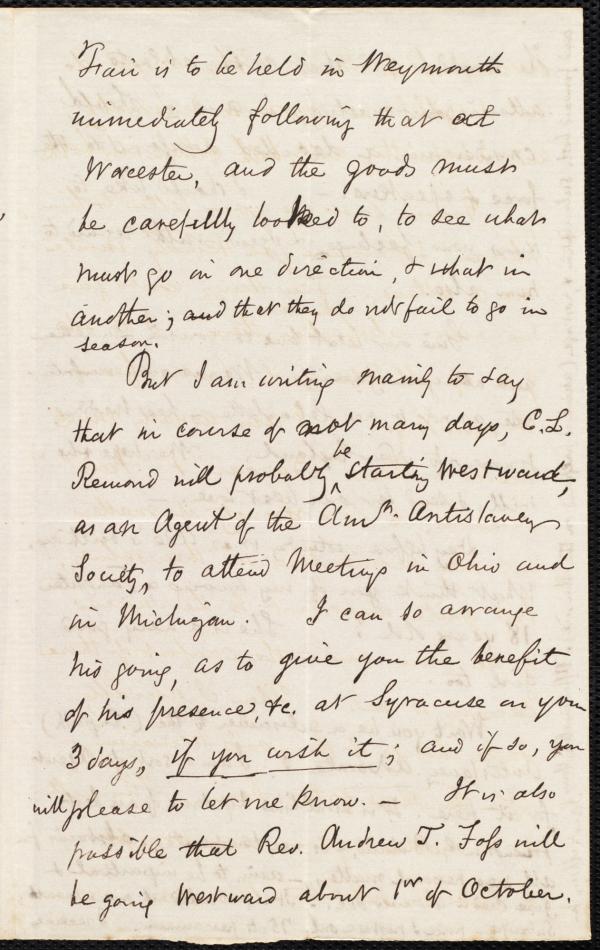 Fair is to be held in Weymouth
immediately following that at
Worcester, and the goods must
be carefully looked to, to see what
must go in one direction, & what in
another; and that they do not fail to go in
season.
But I am writing mainly to say
that in course of not many days, C. L.
Remond will probably be starting Westward,
as an Agent of the Amn. Antislavery
Society, to attend Meetings in Ohio and
in Michigan. I can so arrange
his going, as to give you the benefit
of his presence, &c. at Syracuse on your
3 days, if you wish it; and if so, you
will please to let me know. — It is also
possible that Rev. Andrew T. Foss will
be going Westward about 1st of October.